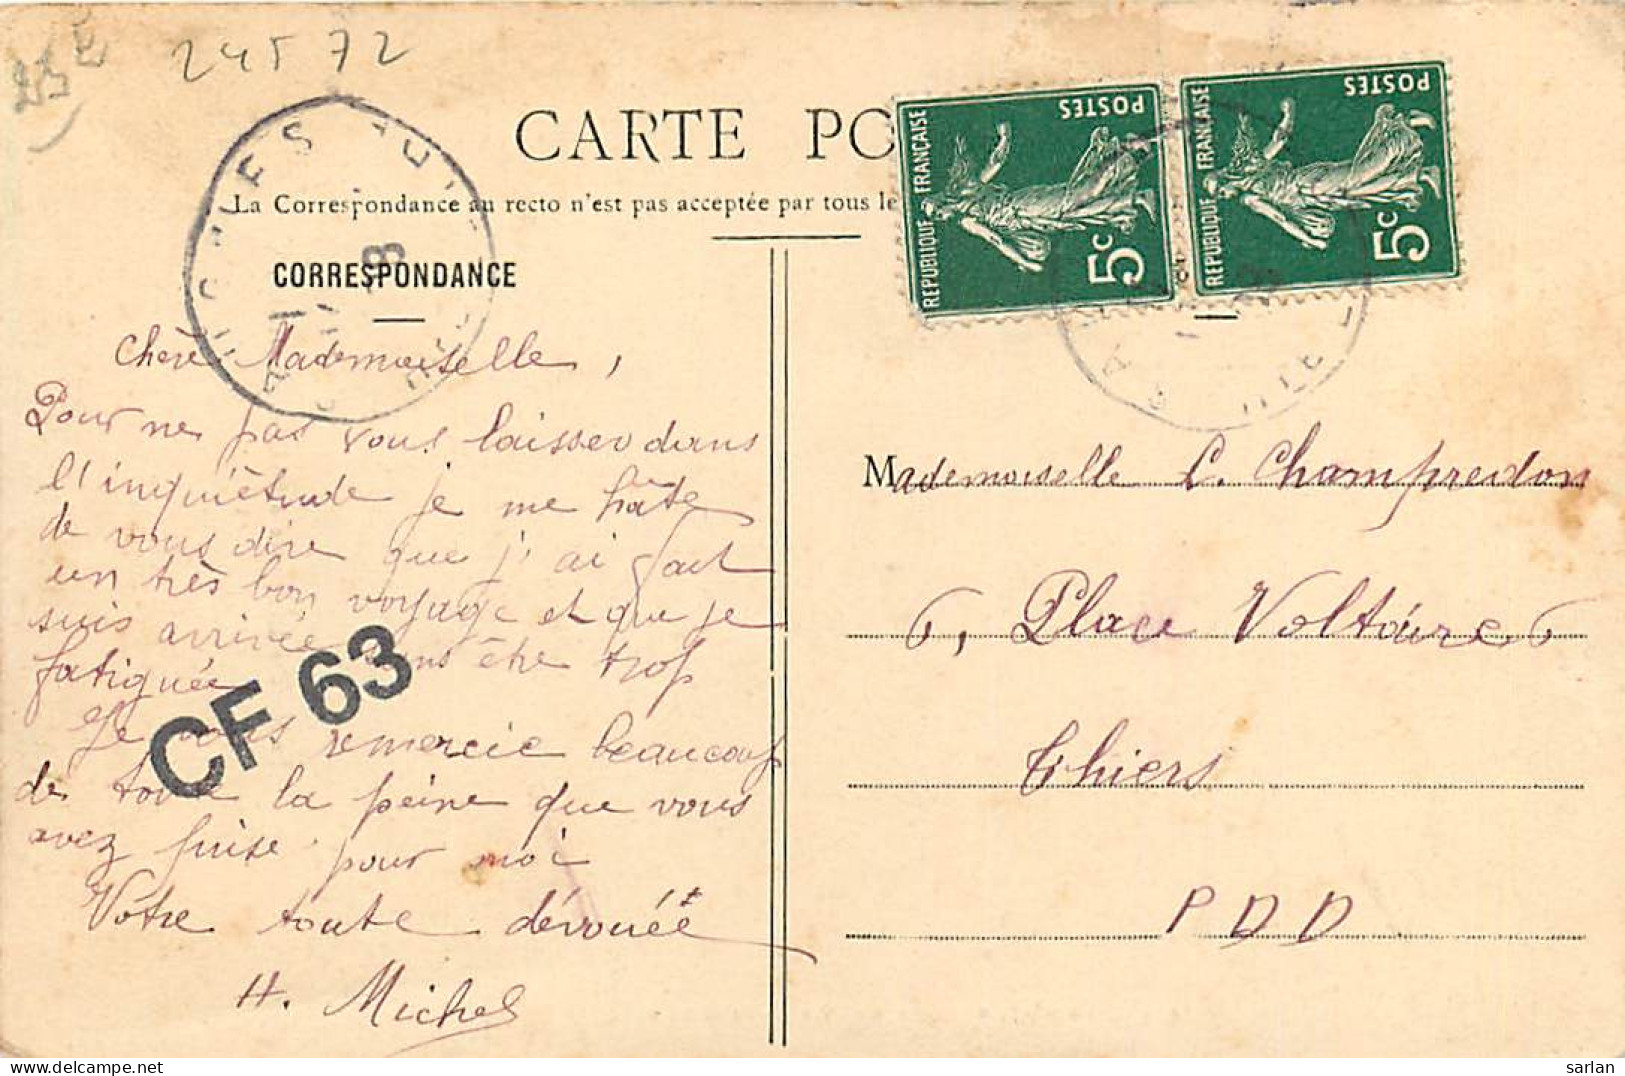 24572
CARTE PO
La Correspondance au recto n'est pas acceptée par tous le
CORRESPONDANCE
REPUBLIQUE FRANÇAISE
POSTES
5c
REPUBLIQUE FRANÇAISE
POSTES
5c
Chère Mademoiselle,
Pour ne pas vous laisser dans
l'inquiètude je me hâte
de vous dire que j'ai fait
un très bon voyage et que je
suis arrivée sans être trop
fatiguée
Je vous remercie beaucoup
de toute la peine que vous
avez prise pour moi
Votre toute dévouée
H. Michel
CF 63
Mademoiselle C. Champredon
6, Place Voltaire 6
Thiers
PDD
sarlan